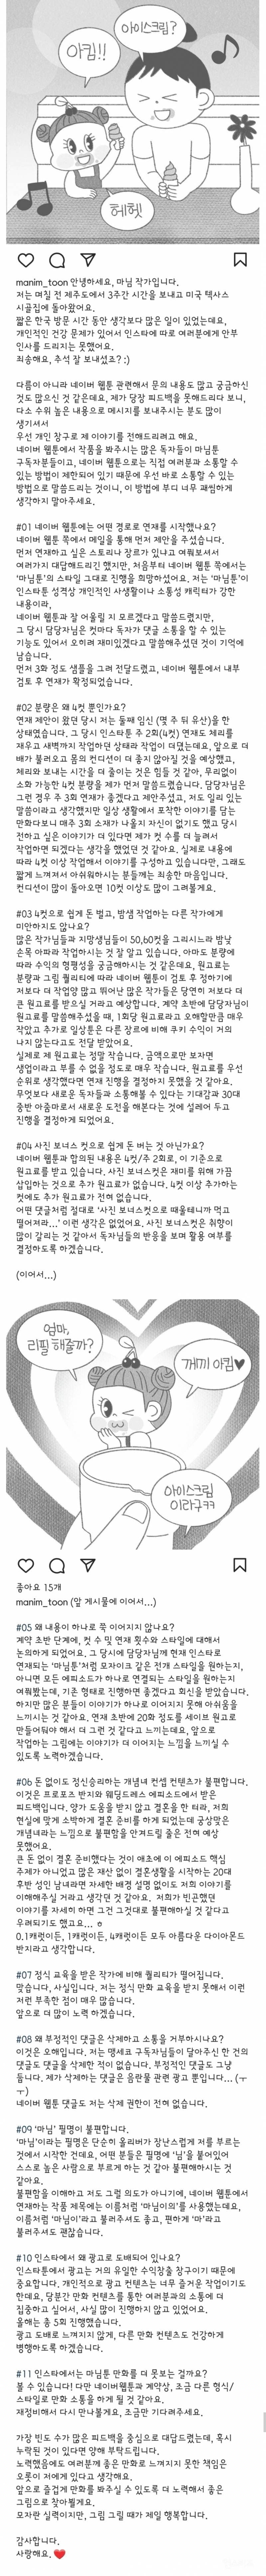 아이스크림?
아킴!!
헤헷
manim_toon 안녕하세요, 마님 작가입니다.
저는 며칠 전 제주도에서 3주간 시간을 보내고 미국 텍사스
시골집에 돌아왔어요.
짧은 한국 방문 시간 동안 생각보다 많은 일이 있었는데요,
개인적인 건강 문제가 있어서 인스타에 따로 여러분에게 안부
인사를 드리지는 못했어요.
죄송해요, 추석 잘 보내셨죠? :)
다름이 아니라 네이버 웹툰 관련해서 문의 내용도 많고 궁금하신
것도 많으신 것 같은데요, 제가 당장 피드백을 못해드리다 보니,
다소 수위 높은 내용으로 메시지를 보내주시는 분도 많이
생기셔서
우선 개인 창구로 제 이야기를 전해드리려고 해요.
네이버 웹툰에서 작품을 봐주시는 많은 독자들이 마님툰
구독자분들이고, 네이버 웹툰으로는 직접 여러분과 소통할 수
있는 방법이 제한되어 있기 때문에 우선 바로 소통할 수 있는
방법으로 말씀드리는 것이니, 이 방법에 부디 너무 괘씸하게
생각하지 말아주세요.
#01 네이버 웹툰에는 어떤 경로로 연재를 시작했나요?
네이버 웹툰 쪽에서 메일을 통해 먼저 제안을 주셨습니다.
먼저 연재하고 싶은 스토리나 장르가 있냐고 여쭤보셔서
여러가지 대답해드리긴 했지만, 처음부터 네이버 웹툰 쪽에서는
'마님툰'의 스타일 그대로 진행을 희망하셨어요. 저는 '마님툰'이
인스타툰 성격상 개인적인 사생활이나 소통성 캐릭터가 강한
내용이라,
네이버 웹툰과 잘 어울릴 지 모르겠다고 말씀드렸지만,
그 당시 담당자님은 컷마다 독자가 댓글 소통을 할 수 있는
기능도 있어서 오히려 재미있겠다고 말씀해주셨던 것이 기억에
남습니다.
먼저 3화 정도 샘플을 그려 전달드렸고, 네이버 웹툰에서 내부
검토 후 연재가 확정되었습니다.
#02 분량은 왜 4컷 뿐인가요?
연재 제안이 왔던 당시 저는 둘째 임신 (몇 주 뒤 유산)을 한
상태였습니다. 그 당시 인스타툰 주 2회(4컷) 연재도 체리를
재우고 새벽까지 작업하던 상태라 작업이 더뎠는데요, 앞으로 더
배가 불러오고 몸의 컨디션이 더 좋지 않아질 것을 예상했고,
체리와 보내는 시간을 더 줄이는 것은 힘들 것 같아, 무리없이
소화 가능한 4컷 분량을 제가 먼저 말씀드렸습니다. 담당자님은
그런 경우 주 3회 연재가 좋겠다고 제안주셨고, 저도 일리 있는
말씀이라고 생각했지만 일상 생활에서 포착한 이야기를 담는
만화다보니 매주 3회 소재가 나올지 자신이 없기도 했고 당시
전하고 싶은 이야기가 더 있다면 제가 컷 수를 더 늘려서
작업하면 되겠다는 생각을 했었던 것 같아요. 실제로 내용에
따라 4컷 이상 작업해서 이야기를 구성하고 있습니다만, 그래도
짧게 느껴져서 아쉬워하시는 분들께는 죄송한 마음입니다.
컨디션이 많이 돌아오면 10컷 이상도 많이 그려볼게요.
#03 4컷으로 쉽게 돈 벌고, 밤샘 작업하는 다른 작가에게
미안하지도 않나요?
많은 작가님들과 지망생님들이 50,60컷을 그리시느라 밤낮
손목 아파라 작업하시는 것 잘 알고 있습니다. 아마도 분량에
따라 수익의 형평성을 궁금해하시는 것 같은데요, 원고료는
분량과 그림 퀄리티에 따라 네이버 웹툰이 검토 후 정하기에
저보다 더 작업양 많고 뛰어난 많은 작가들은 당연히 저보다 더
큰 원고료를 받으실 거라고 예상합니다. 계약 초반에 담당자님이
원고료를 말씀해주셨을 때, 1회당 원고료라고 오해할만큼 매우
작았고 추가로 일상툰은 다른 장르에 비해 쿠키 수익이 거의
나지 않는다고도 전달 받았어요.
실제로 제 원고료는 정말 작습니다. 금액으로만 보자면
생업이라고 부를 수 없을 정도로 매우 작습니다. 원고료를 우선
순위로 생각했다면 연재 진행을 결정하지 못했을 것 같아요.
무엇보다 새로운 독자들과 소통해볼 수 있다는 기대감과 30대
중반 아줌마로서 새로운 도전을 해본다는 것에 설레어 두고
진행을 결정하게 되었어요.
#04 사진 보너스 컷으로 쉽게 돈 버는 것 아닌가요?
네이버 웹툰과 합의된 내용은 4컷/주 2회로, 이 기준으로
원고료를 받고 있습니다. 사진 보너스컷은 재미를 위해 가끔
삽입하는 것으로 추가 원고료가 없습니다. 4컷 이상 추가하는
컷에도 추가 원고료가 전혀 없습니다.
어떤 댓글처럼 절대로 '사진 보너스컷으로 때울테니까 먹고
떨어져라...' 이런 생각은 없었어요. 사진 보너스컷은 취향이
많이 갈리는 것 같아서 독자님들의 반응을 보며 활용 여부를
결정하도록 하겠습니다.
(이어서...)
엄마,
리필 해줄까?
깨끼 아킴♥
아이스크림
이라구ㅋㅋ
좋아요 15개
manim_toon (앞 게시물에 이어서...)
#05 왜 내용이 하나로 쭉 이어지지 않나요?
계약 초반 단계에, 컷 수 및 연재 횟수와 스타일에 대해서
논의하게 되었어요, 그 당시에 담당자님께 현재 인스타로
연재되는 '마님툰'처럼 모자이크 같은 전개 스타일을 원하는지,
아니면 모든 에피소드가 하나로 연결되는 스타일을 원하는지
여쭤봤는데, 기존 형태로 진행하면 좋겠다고 회신을 받았습니다.
하지만 많은 분들이 이야기가 하나로 이어지지 못해 아쉬움을
느끼시는 것 같아요. 연재 초반에 20화 정도를 세이브 원고로
만들어둬야 해서 더 그런 것 같다고 느끼는데요, 앞으로
작업하는 그림에는 이야기가 더 이어지는 느낌을 느끼실 수
있도록 노력하겠습니다.
#06 돈 없이도 정신승리하는 개념녀 컨셉 컨텐츠가 불편합니다.
이것은 프로포즈 반지와 웨딩드레스 에피소드에서 받은
피드백입니다. 양가 도움을 받지 않고 결혼을 한 터라, 저희
현실에 맞게 소박하게 결혼 준비를 하게 되었는데 궁상맞은
개념녀라는 느낌으로 불편함을 안겨드릴 줄은 전혀 예상
못했어요.
큰 돈 없이 결혼 준비했다는 것이 애초에 이 에피소드 핵심
주제가 아니었고 많은 재산 없이 결혼생활을 시작하는 20대
후반 성인 남녀라면 자세한 배경 설명 없이도 저희 이야기를
이해해주실 거라고 생각던 것 같아요. 저희가 빈곤했던
이야기를 자세히 하면 그건 그것대로 불편해하실 것 같다고
우려되기도 했고요... ㅎ
0.1캐럿이든, 1캐럿이든, 4캐럿이든 모두 아름다운 다이아몬드
반지라고 생각합니다.
#07 정식 교육을 받은 작가에 비해 퀄리티가 떨어집니다.
맞습니다, 사실입니다. 저는 정식 만화 교육을 받지 못해서 이런
저런 부족한 점이 매우 많습니다.
앞으로 더 많이 노력 하겠습니다.
#08 왜 부정적인 댓글은 삭제하고 소통을 거부하시나요?
이것은 오해입니다. 저는 맹세코 구독자님들이 달아주신 한 건의
댓글도 댓글을 삭제한 적이 없습니다. 부정적인 댓글도 그냥
둡니다. 제가 삭제하는 댓글은 음란물 관련 광고 뿐입니다... (ㅜ
ㅜ)
네이버 웹툰 댓글도 저는 삭제 권한이 전혀 없습니다.
#09 '마님' 필명이 불편합니다.
'마님'이라는 필명은 단순히 올리버가 장난스럽게 저를 부르는
것에서 시작한 건데요, 어떤 분들은 필명에 '님'을 붙여있어
스스로 높은 사람으로 부르게 하는 것 같아 불편해하시는 것
같아요.
불편함을 이해하고 저도 그럴 의도가 아니기에, 네이버 웹툰에서
연재하는 작품 제목에는 이름처럼 '마님이의'를 사용했는데요,
이름처럼 '마님이'라고 불러주셔도 좋고, 편하게 '마'라고
불러주셔도 괜찮습니다.
#10 인스타에서 왜 광고로 도배되어 있나요?
인스타툰에서 광고는 거의 유일한 수익창출 창구이기 때문에
중요합니다. 개인적으로 광고 컨텐츠는 너무 즐거운 작업이기도
한데요, 당분간 만화 컨텐츠를 통한 여러분과의 소통에 더
집중하고 싶어서, 사실 많이 진행하지 않고 있었어요.
올해는 총 5회 진행했습니다.
광고 도배로 느껴지지 않게, 다른 만화 컨텐츠도 건강하게
병행하도록 하겠습니다.
#11 인스타에서는 마님툰 만화를 더 못보는 걸까요?
볼 수 있습니다! 다만 네이버웹툰과 계약상, 조금 다른 형식/
스타일로 만화 소통을 하게 될 것 같아요.
재정비해서 다시 만나볼게요, 조금만 기다려주세요.
가장 빈도 수가 많은 피드백을 중심으로 대답드렸는데, 혹시
누락된 것이 있다면 양해 부탁드립니다.
노력했음에도 여러분께 좋은 만화로 느껴지지 못한 책임은
오롯이 저에게 있다고 생각해요.
앞으로 즐겁게 만화를 봐주실 수 있도록 더 노력해서 좋은
그림으로 찾아뵐게요.
모자란 실력이지만, 그림 그릴 때가 제일 행복합니다.
감사합니다.
사랑해요. ❤️